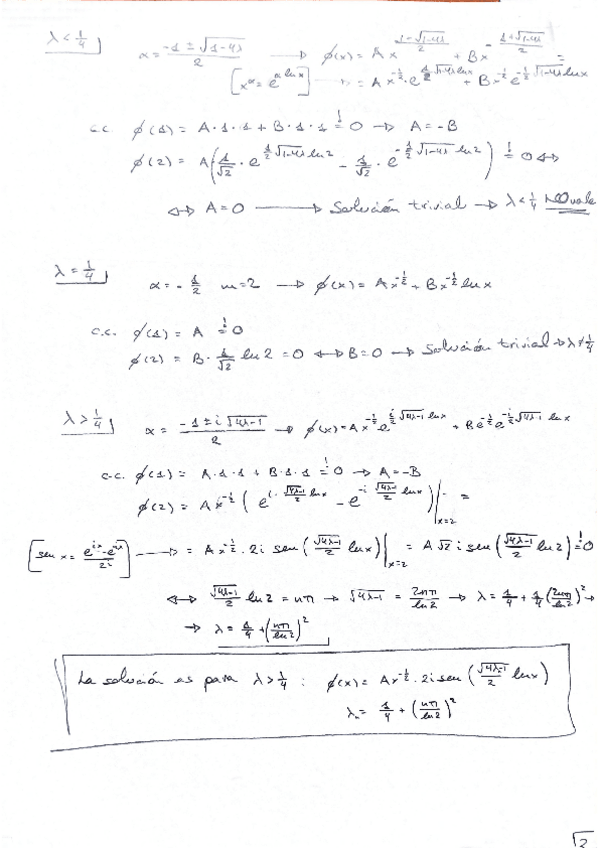 λ < 1/4
α = (-1 ± √(1-4λ))/2 → φ(x) = A x^((-1+√(1-4λ))/2) + B x^(-(1+√(1-4λ))/2) =
[x^α = e^(α ln x)] → = A x^(-1/2) · e^(1/2 √(1-4λ) ln x) + B x^(-1/2) e^(-1/2 √(1-4λ) ln x)
c.c. φ(1) = A·1·1 + B·1·1 =! 0 → A = -B
φ(2) = A(1/√2 · e^(1/2 √(1-4λ) ln 2) - 1/√2 · e^(-1/2 √(1-4λ) ln 2)) =! 0 ↔
↔ A = 0 → Solución trivial → λ < 1/4 NO vale
λ = 1/4
α = -1/2 m = 2 → φ(x) = A x^(-1/2) + B x^(-1/2) ln x
c.c. φ(1) = A =! 0
φ(2) = B · 1/√2 ln 2 = 0 ↔ B = 0 → Solución trivial → λ ≠ 1/4
λ > 1/4
α = (-1 ± i √(4λ-1))/2 → φ(x) = A x^(-1/2) e^(i/2 √(4λ-1) ln x) + B e^(-1/2) e^(-i/2 √(4λ-1) ln x)
c.c. φ(1) = A·1·1 + B·1·1 =! 0 → A = -B
φ(2) = A x^(-1/2) (e^(i · √(4λ-1)/2 ln x) - e^(-i √(4λ-1)/2 ln x))|_(x=2) =
[sen x = (e^(ix) - e^(-ix))/2i] → = A x^(-1/2) · 2i sen(√(4λ-1)/2 ln x)|_(x=2) = A √2 i sen(√(4λ-1)/2 ln 2) =! 0
↔ √(4λ-1)/2 ln 2 = nπ → √(4λ-1) = 2nπ/ln 2 → λ = 1/4 + 1/4 (2nπ/ln 2)² →
→ λ = 1/4 + (nπ/ln 2)²
La solución es para λ > 1/4 : φ(x) = A x^(-1/2) · 2i sen(√(4λ-1)/2 ln x)
λₙ = 1/4 + (nπ/ln 2)²
2